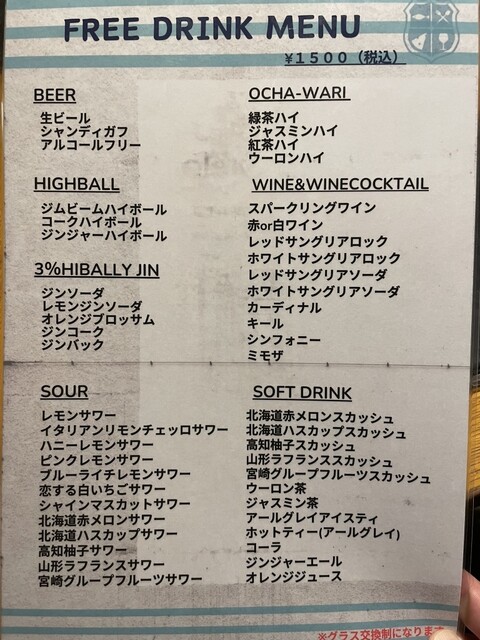 FREE DRINK MENU
¥１５００（税込）
BEER
生ビール
シャンディガフ
アルコールフリー
HIGHBALL
ジムビームハイボール
コークハイボール
ジンジャーハイボール
3%HIBALLY JIN
ジンソーダ
レモンジンソーダ
オレンジブロッサム
ジンコーク
ジンバック
OCHA-WARI
緑茶ハイ
ジャスミンハイ
紅茶ハイ
ウーロンハイ
WINE&WINECOCKTAIL
スパークリングワイン
赤or白ワイン
レッドサングリアロック
ホワイトサングリアロック
レッドサングリアソーダ
ホワイトサングリアソーダ
カーディナル
キール
シンフォニー
ミモザ
SOUR
レモンサワー
イタリアンリモンチェッロサワー
ハニーレモンサワー
ピンクレモンサワー
ブルーライチレモンサワー
恋する白いちごサワー
シャインマスカットサワー
北海道赤メロンサワー
北海道ハスカップサワー
高知柚子サワー
山形ラフランスサワー
宮崎グループフルーツサワー
SOFT DRINK
北海道赤メロンスカッシュ
北海道ハスカップスカッシュ
高知柚子スカッシュ
山形ラフランススカッシュ
宮崎グループフルーツスカッシュ
ウーロン茶
ジャスミン茶
アールグレイアイスティ
ホットティー(アールグレイ)
コーラ
ジンジャーエール
オレンジジュース
※グラス交換制になります